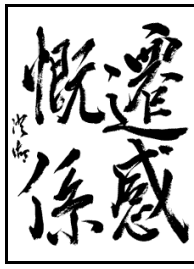 遷感
慨係